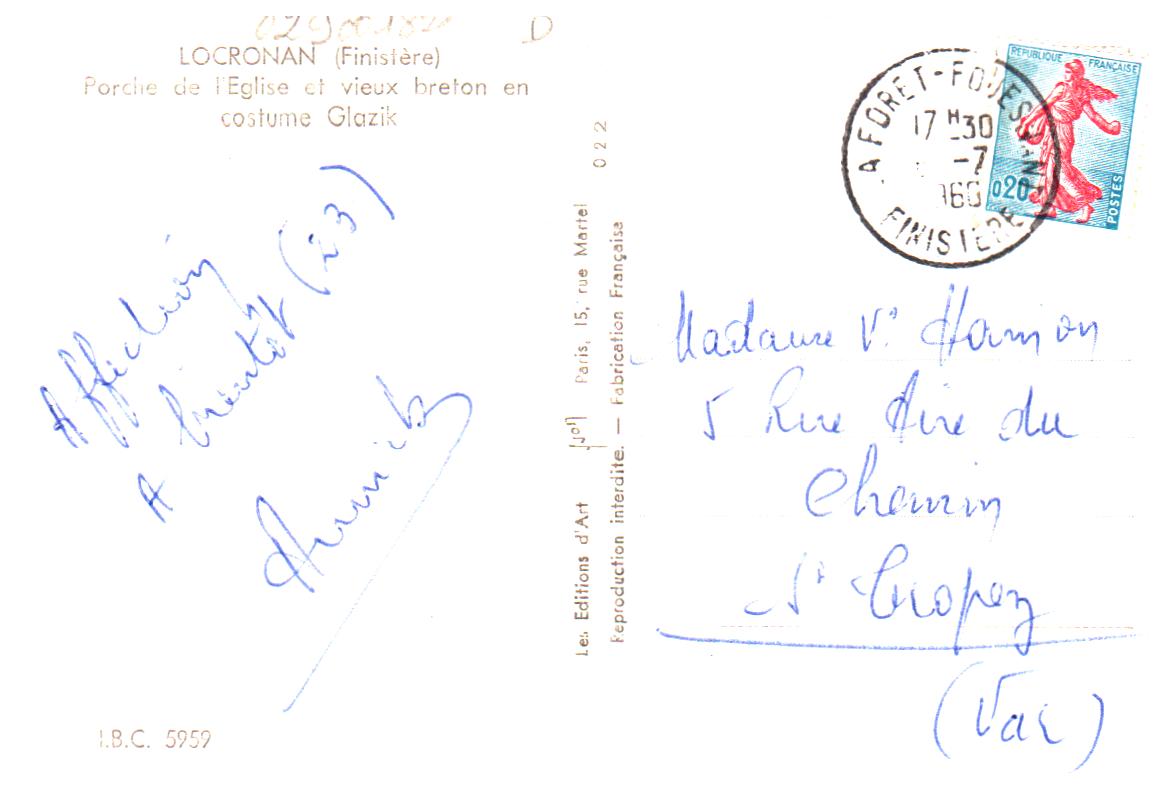 02900182 D
LOCRONAN (Finistère)
Porche de l'Eglise et vieux breton en
costume Glazik
Affection
A bientôt (23)
Annick
I.B.C. 5959
Les Editions d'Art Jos Paris, 15, rue Martel 022
Reproduction interdite. — Fabrication Française
REPUBLIQUE FRANÇAISE
0,20
POSTES
LA FORET-FOUESNANT
17 H 30
-7
1960
FINISTERE
Madame Vᵉ Hamon
5 Rue Aire du
Chemin
St Tropez
(Var)